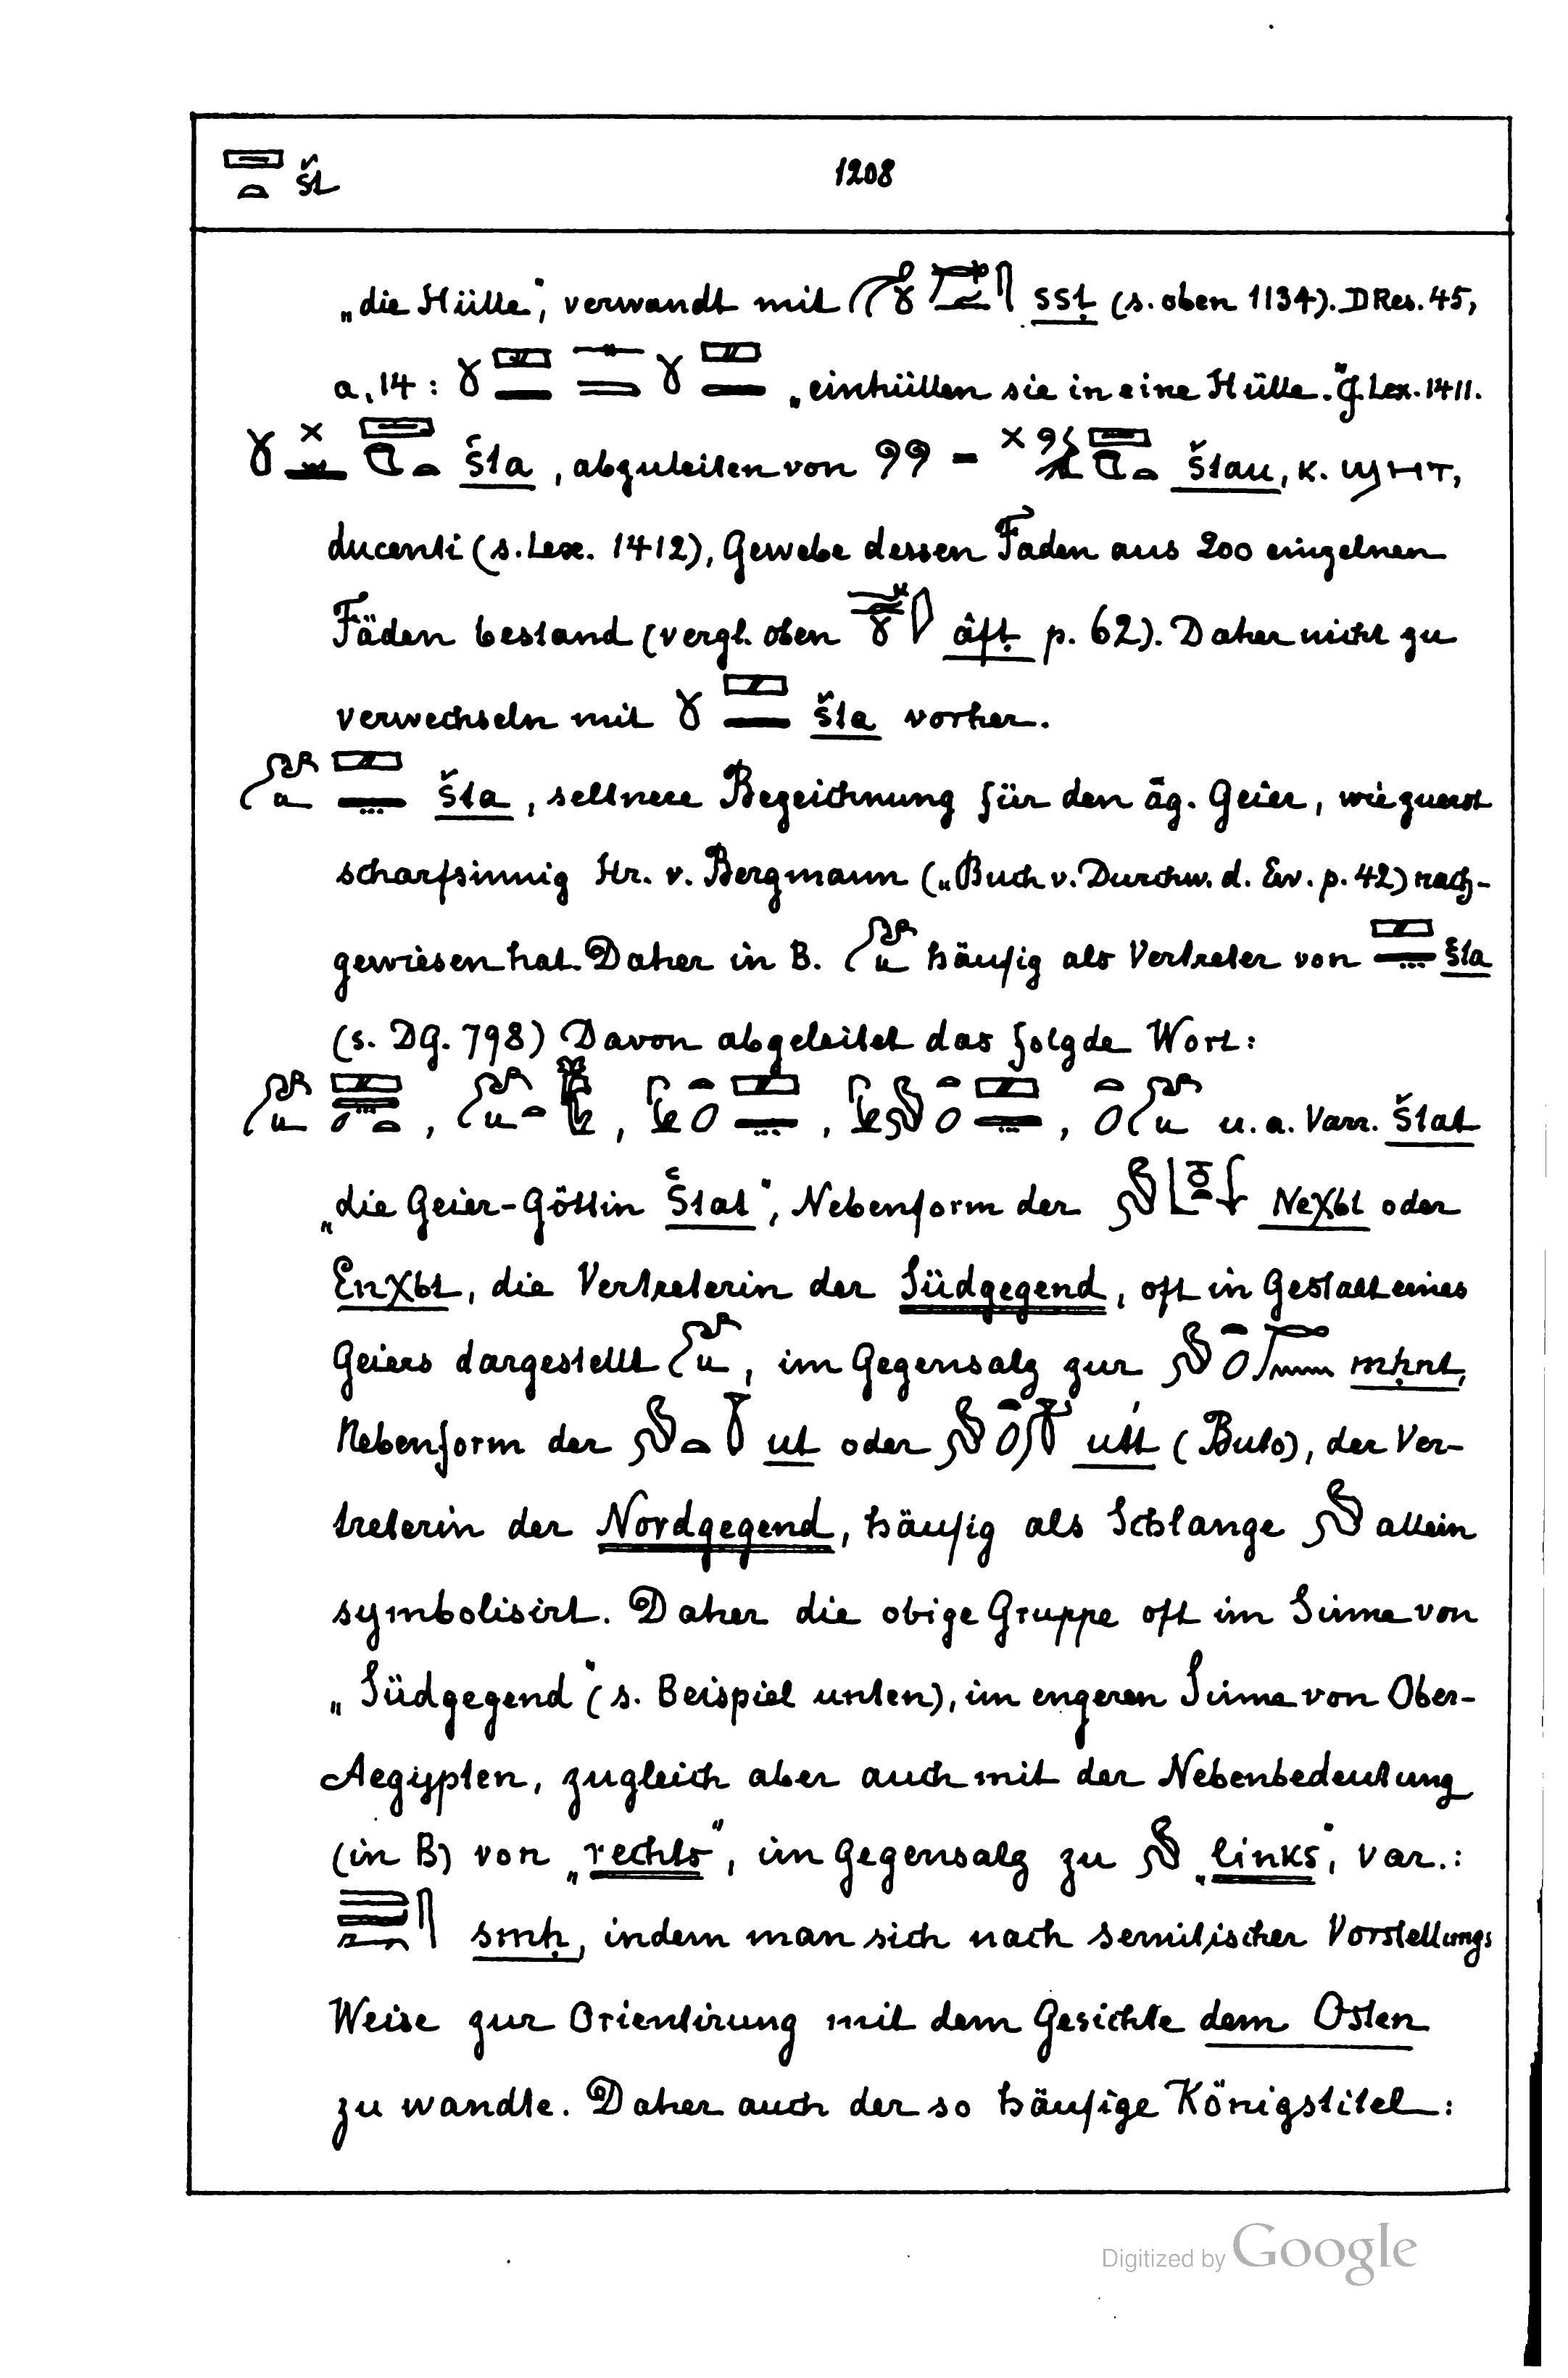 št 1208
„die Hülle“, verwandt mit sst̩ (s. oben 1134). DRes. 45,
a, 14: „einhüllen sie in eine Hülle.“ cf. Lex. 1411.
šta, abzuleiten von 99 = štau, K. ϣⲏⲧ,
ducenti (s. Lex. 1412), Gewebe dessen Faden aus 200 einzelnen
Fäden bestand (vergl. oben âft̩ p. 62). Daher nicht zu
verwechseln mit šta vorher.
šta, seltnere Bezeichnung für den äg. Geier, wie zuerst
scharfsinnig Hr. v. Bergmann („Buch v. Durchw. d. Ew. p. 42) nach-
gewiesen hat. Daher in B. häufig als Vertreter von šta
(s. DG. 798) Davon abgeleitet das folgde Wort:
, , , , u. a. Varr. štat
„die Geier-Göttin Štat“, Nebenform der Neχbt oder
Enχbt, die Vertreterin der Südgegend, oft in Gestalt eines
Geiers dargestellt , im Gegensatz zur mḥnt,
Nebenform der ut oder utt (Buto), der Ver-
treterin der Nordgegend, häufig als Schlange allein
symbolisirt. Daher die obige Gruppe oft im Sinne von
„Südgegend“ (s. Beispiel unten), im engeren Sinne von Ober-
Aegypten, zugleich aber auch mit der Nebenbedeutung
(in B) von „rechts“, im Gegensatz zu „links“, var.:
smḥ, indem man sich nach semitischer Vorstellungs
Weise zur Orientirung mit dem Gesichte dem Osten
zu wandte. Daher auch der so häufige Königstitel:
Digitized by Google